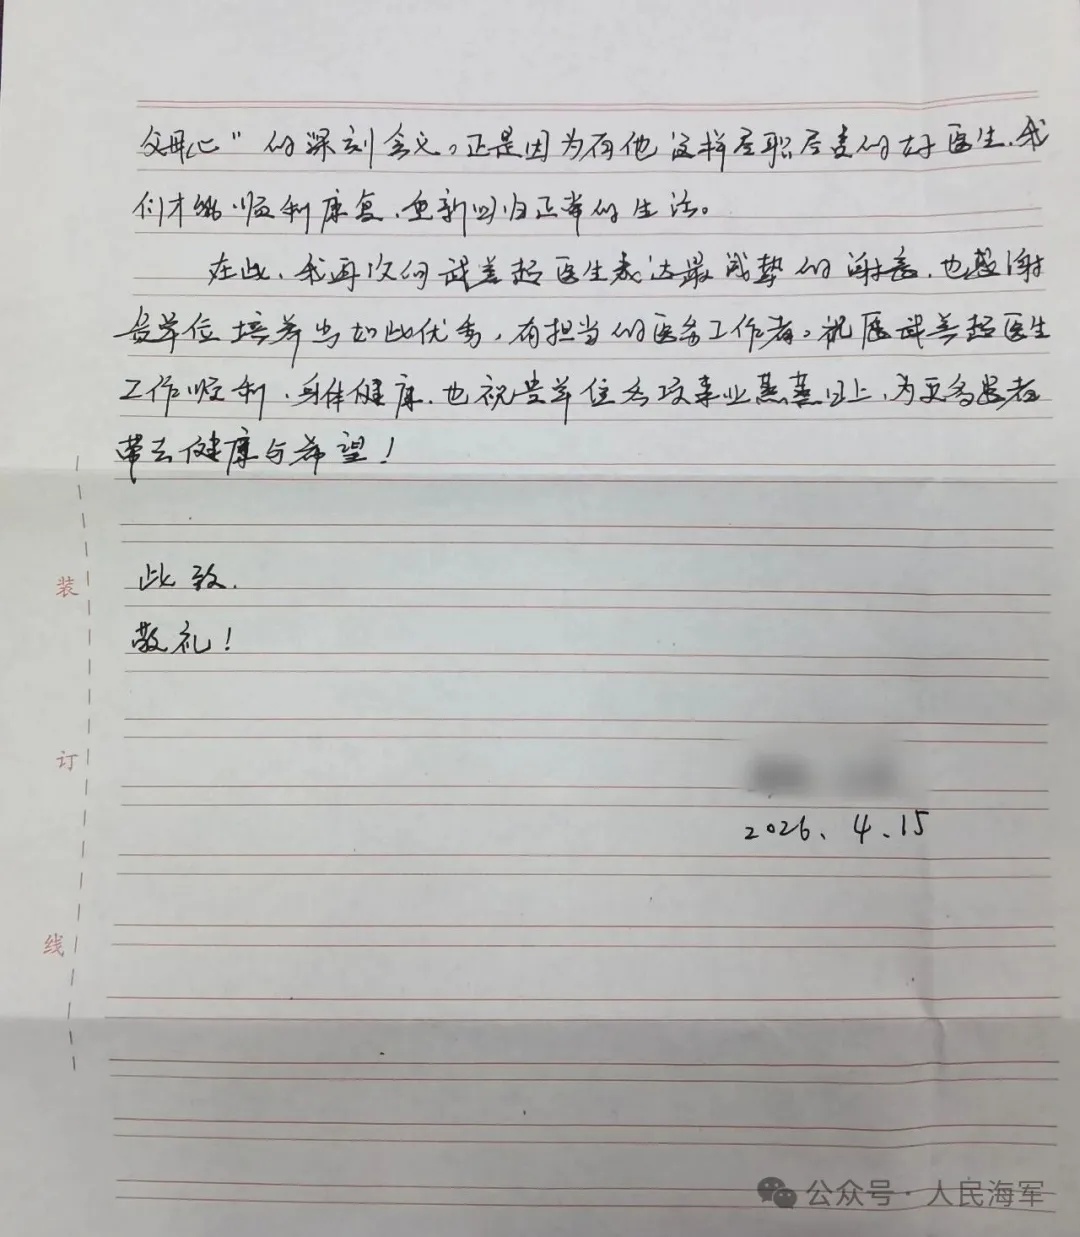 父母心”的深刻含义。正是因为有他这样尽职尽责的好医生,我
们才能顺利康复,重新回归正常的生活。
在此,我再次向武善超医生表达最诚挚的谢意,也感谢
贵单位培养出如此优秀,有担当的医务工作者。祝愿武善超医生
工作顺利,身体健康,也祝贵单位各项事业蒸蒸日上,为更多患者
带去健康与希望!
此致,
敬礼!
2026、4、15
装
订
线
公众号·人民海军